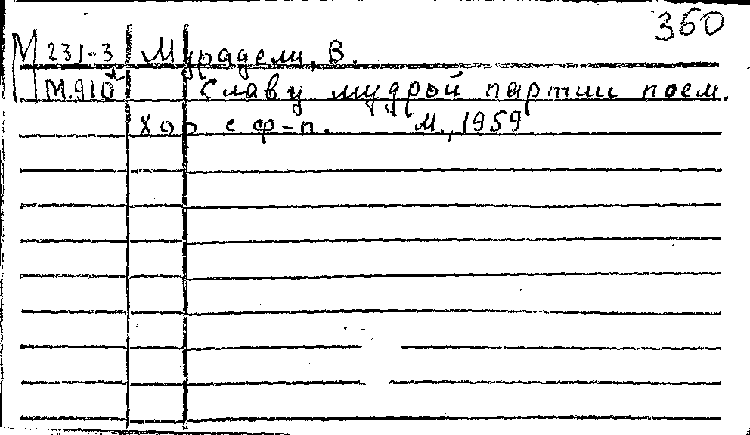 360
М 231-3 Мурадели, В.
М.910 Славу мудрой партии поем.
Хор с ф-п. М., 1959